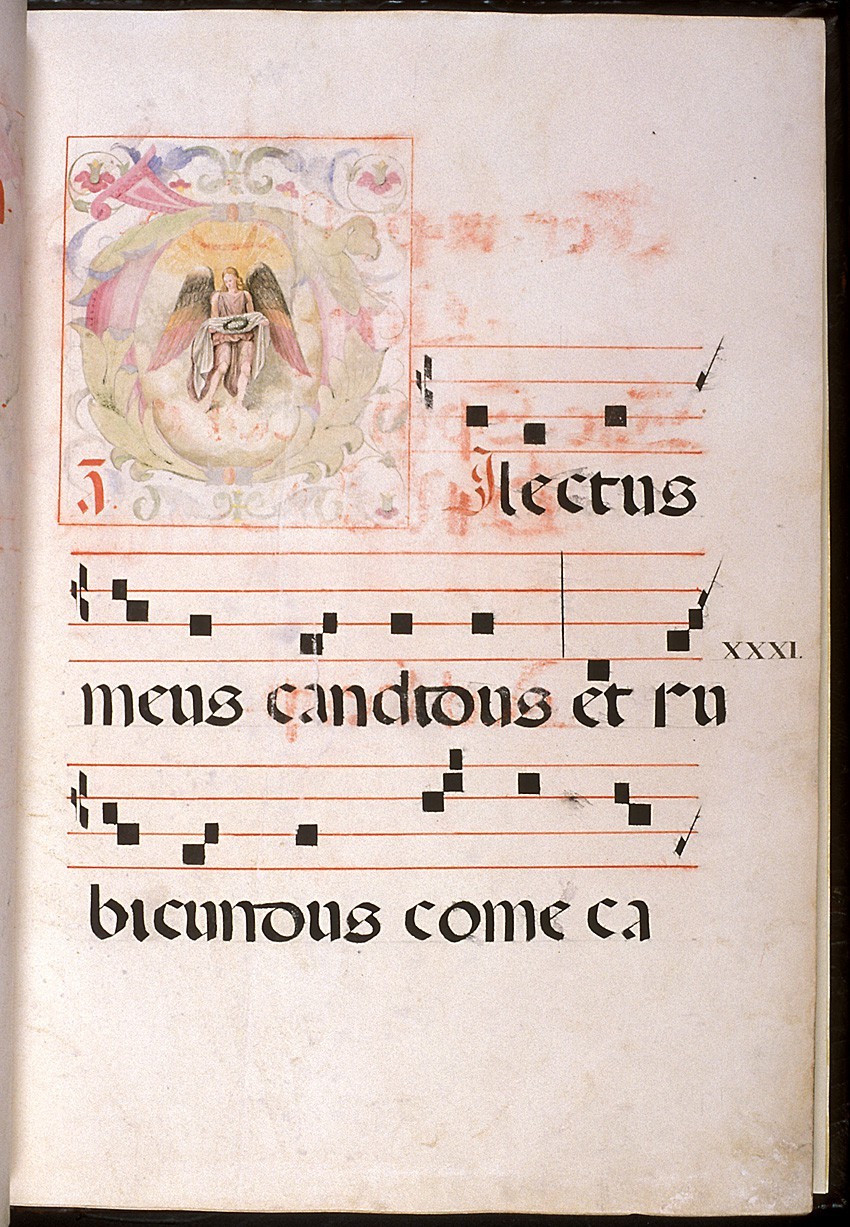 3.
Dilectus
meus candidus et ru
XXXI.
bicundus come ca